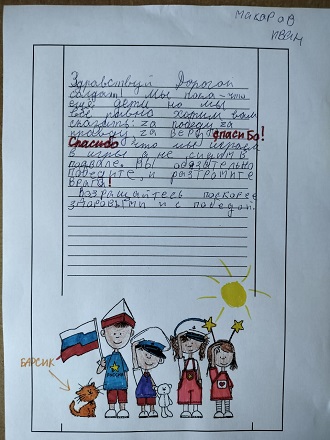 Макаров
Иван
Здравствуй Дорогой
солдат! Мы пока-что
ещё дети но мы
всё равно хотим вам
сказать: за победу за
правду за веру спасибо!
Спасибо что мы играем
в игры а не сидим в
подвале. Вы обязательно
победите, и разгромите
врага!
Возвращайтесь поскорее
здоровыми и с победой.
БАРСИК